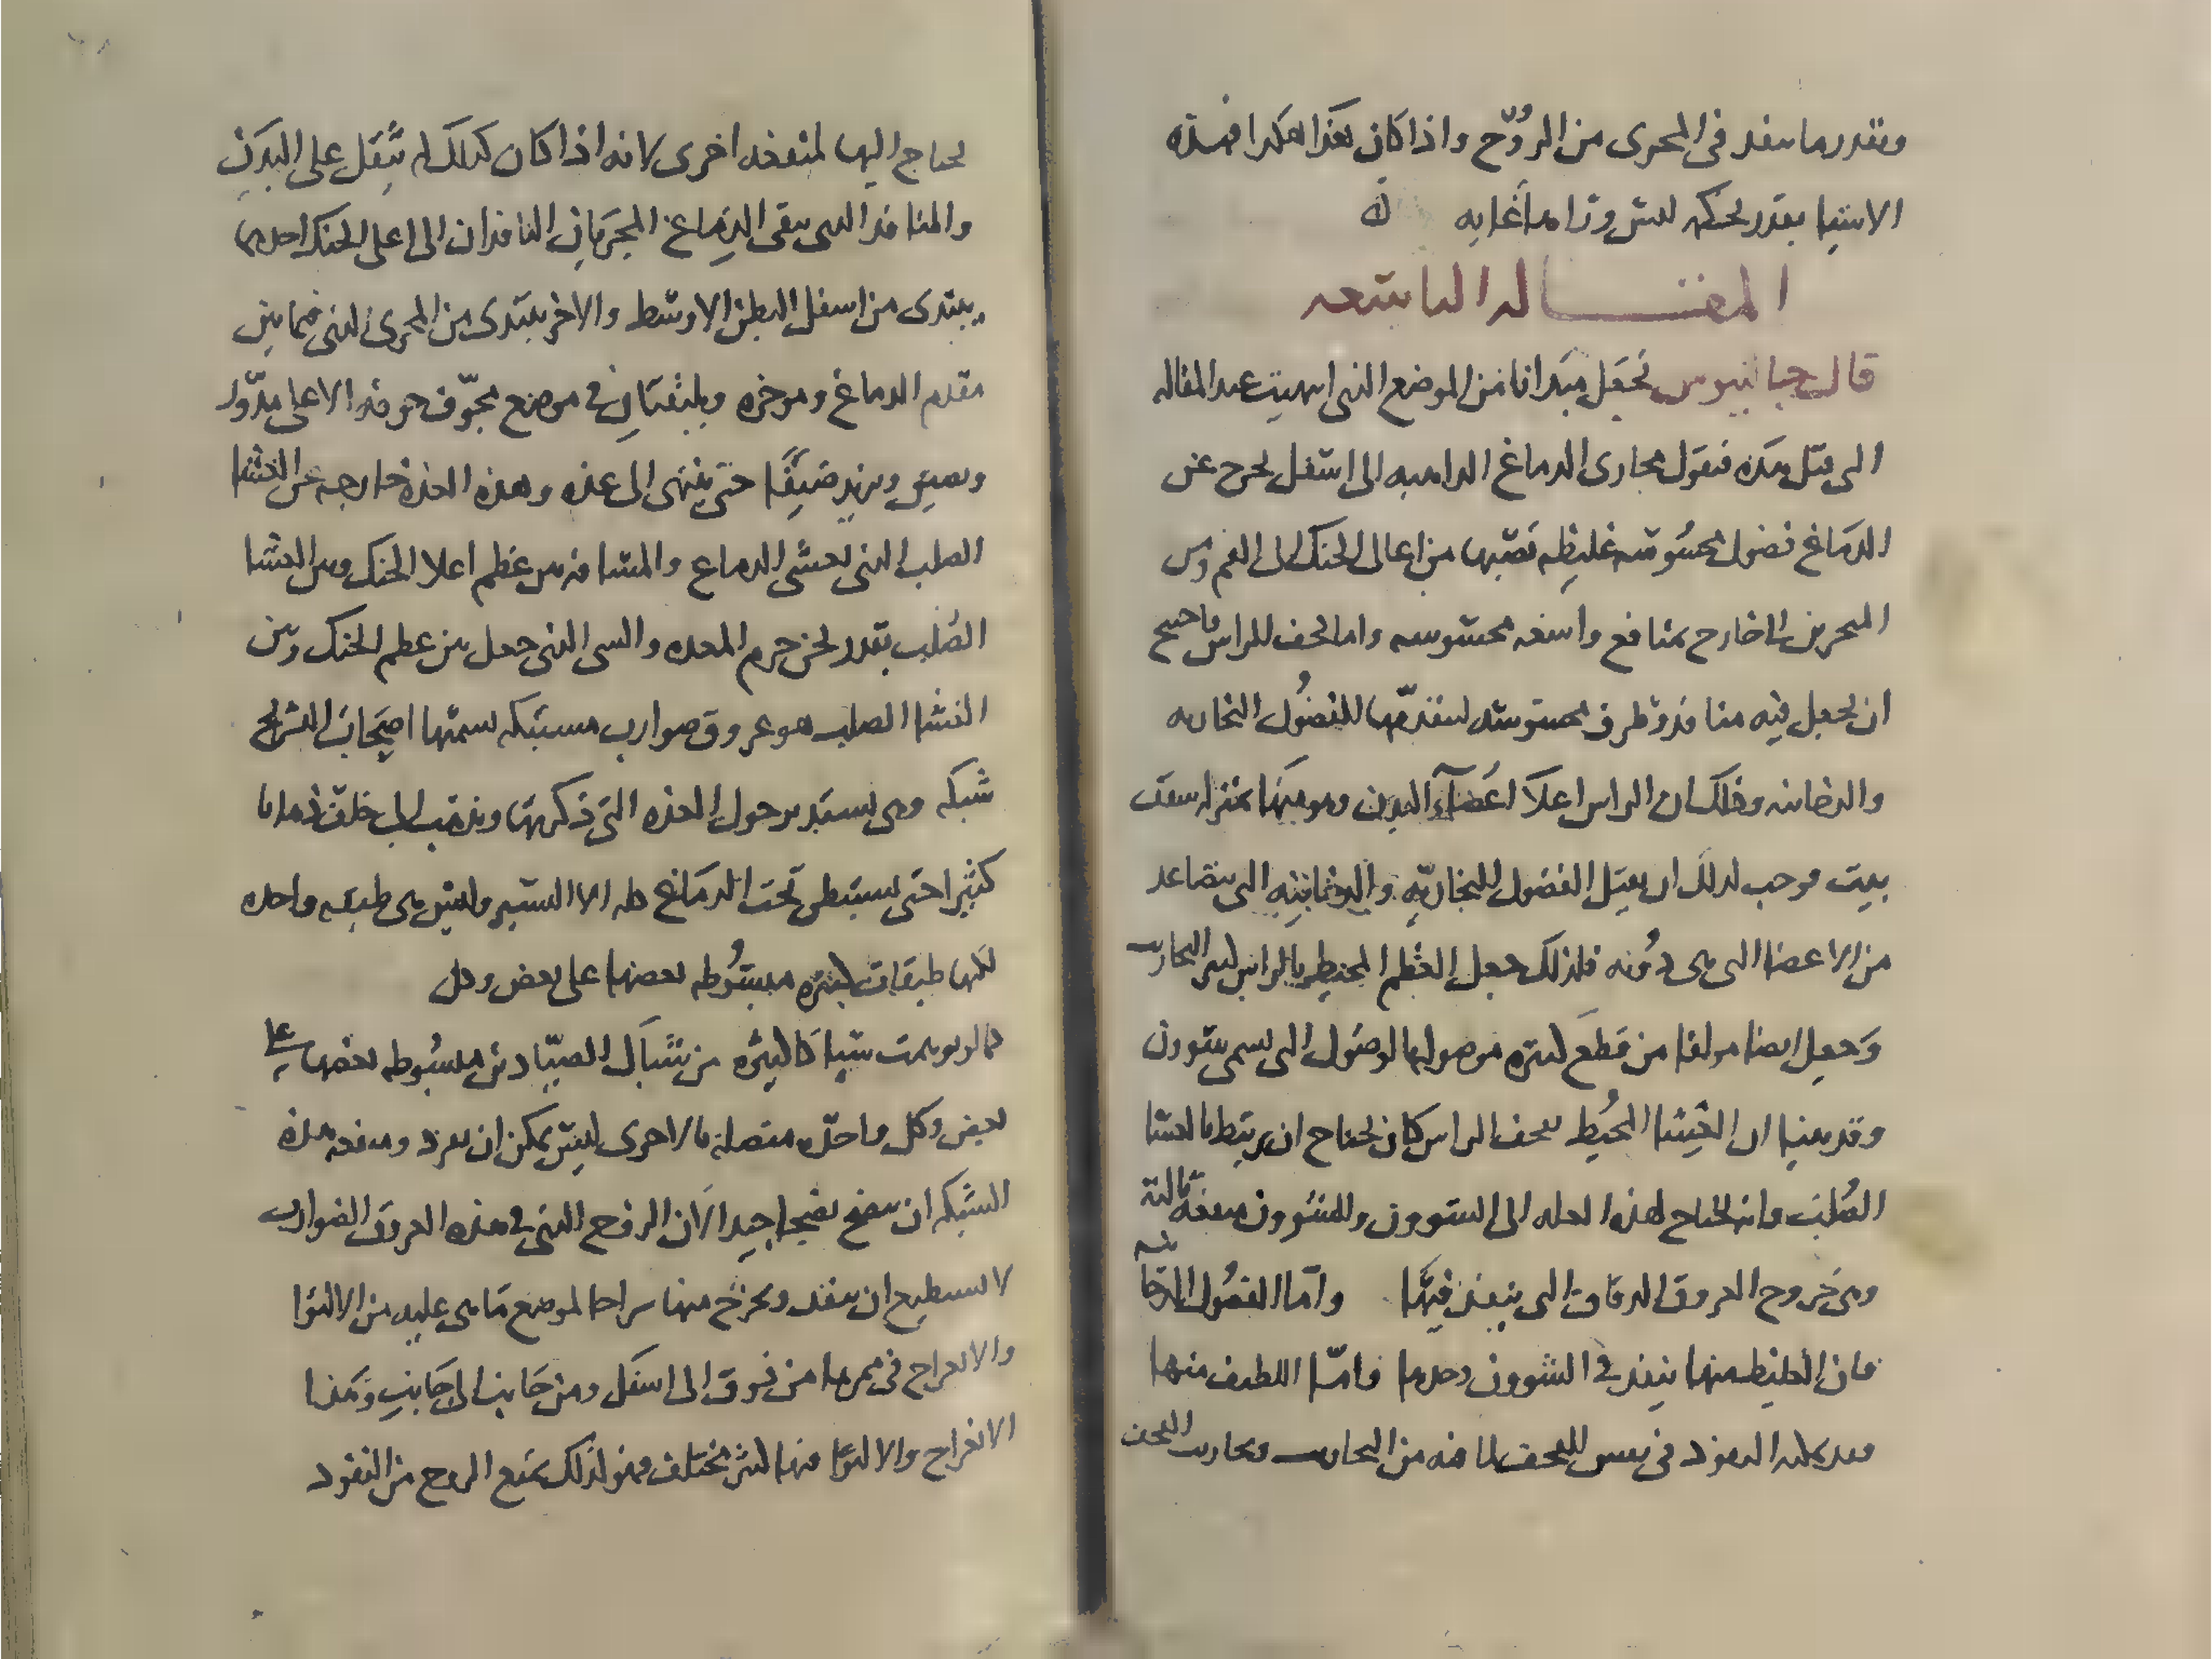 وبقدر ما ينفد فى المجرى من الروح واذا كان هذا هكدا فهذه
الاشيا بقدر لحكمه ليس وراها غايه
المقـــــاله التاسعه
قال جالينوس نجعل مبدانا من الموضع الذى انتهيت عند المقاله
التى قبل هذه فنقول مجارى الدماغ الداهبه الى اسفل تخرج عن
الدماغ فضول محسوسه غليظه تصبها من اعالى الحنك الى الفم ومن
المنخرين الى خارج بمنافع واسعه محسوسه واما قحف الراس فاحتيج
ان يجعل فيه منافذ وطرق محسوسه لينفذ منها للفضول البخاريه
والدخانيه وذلك ان الراس اعلا اعضآء البدن وهو منها بمنزله سقف
بيت فوجب لدلك ان يقبل الفضول البخاريه والدخانيه التى تتصاعد
من الاعضا التى هى دونه فلذلك جعل العظم المحيط بالراس كثير التجاويف
وجعل ايضا مولفا من قطع كثيره موصوله الوصول التى تسمى شوون
وقد بينا ان الغشا المحيط بقحف الراس كان يحتاج ان يرتبط بالغشا
الصلب وانه احتاج لهذه العله الى الشوون وللشوون منفعة ثالثة
وهى خروج العروق الدقاق التى ينفذ فيها واما الفضول الدخانيه
فان الغليظ منها ينفذ فى الشوون وحدها واما اللطيف منها
فقد يمكنه النفود فى نفس القحف لما فيه من التجاويف وتجاويف القحف
يحتاج اليها لمنفعه اخرى لانه اذا كان كذلك لم يثقل على البدن
والمنافذ التى تنقى الدماغ المجريان النافذان الى اعلى الحنك احدهما
يبتدى من اسفل البطن الاوسط والاخر يبتدى من المجرى الذى فيما بين
مقدم الدماغ وموخره ويلتقيان فى موضع مجوف جوفه الاعلى مدور
ويضيق ويزيد ضيقا حتى ينتهى الى غده وهذه الغده خارجه عن الغشا
الصلب الذى يغشى الدماغ والمسافه بين عظم اعلا الحنك وبين الغشا
الصلب بقدر ثخن جرم الغده والشى الذى جعل بين عظم الحنك وبين
الغشا الصلب هو عروق ضوارب مشتبكه يسميها اصحاب التشريح
شبكه وهى تستدير حول الغده التى ذكرتها وتذهب الى خلف ذهابا
كثيرا حتى تستبطن تحت الدماغ كله الا اليسير وليس هى طبقه واحده
لكنها طبقات كثيره مبسوطه بعضها على بعض وهى
كما لو توهمت شيا كاكثره من شباك الصيادين مبسوطه بعضها على
بعض وكل واحده متصله بالاخرى ليس يمكن ان تفرد ومنفعه هذه
الشبكه ان ينضج نضجا جيدا لان الروح الذى فى هذه العروق الضوارب
لا يستطيع ان ينفد ويخرج منها سراحا لموضع ما هى عليه من الالتوا
والانعراج فى ممرها من فوق الى اسفل ومن جانب الى جانب وهذا
الانعراج والالتوا فيها كثير مختلف فهو لذلك يمنع الروح من النفود